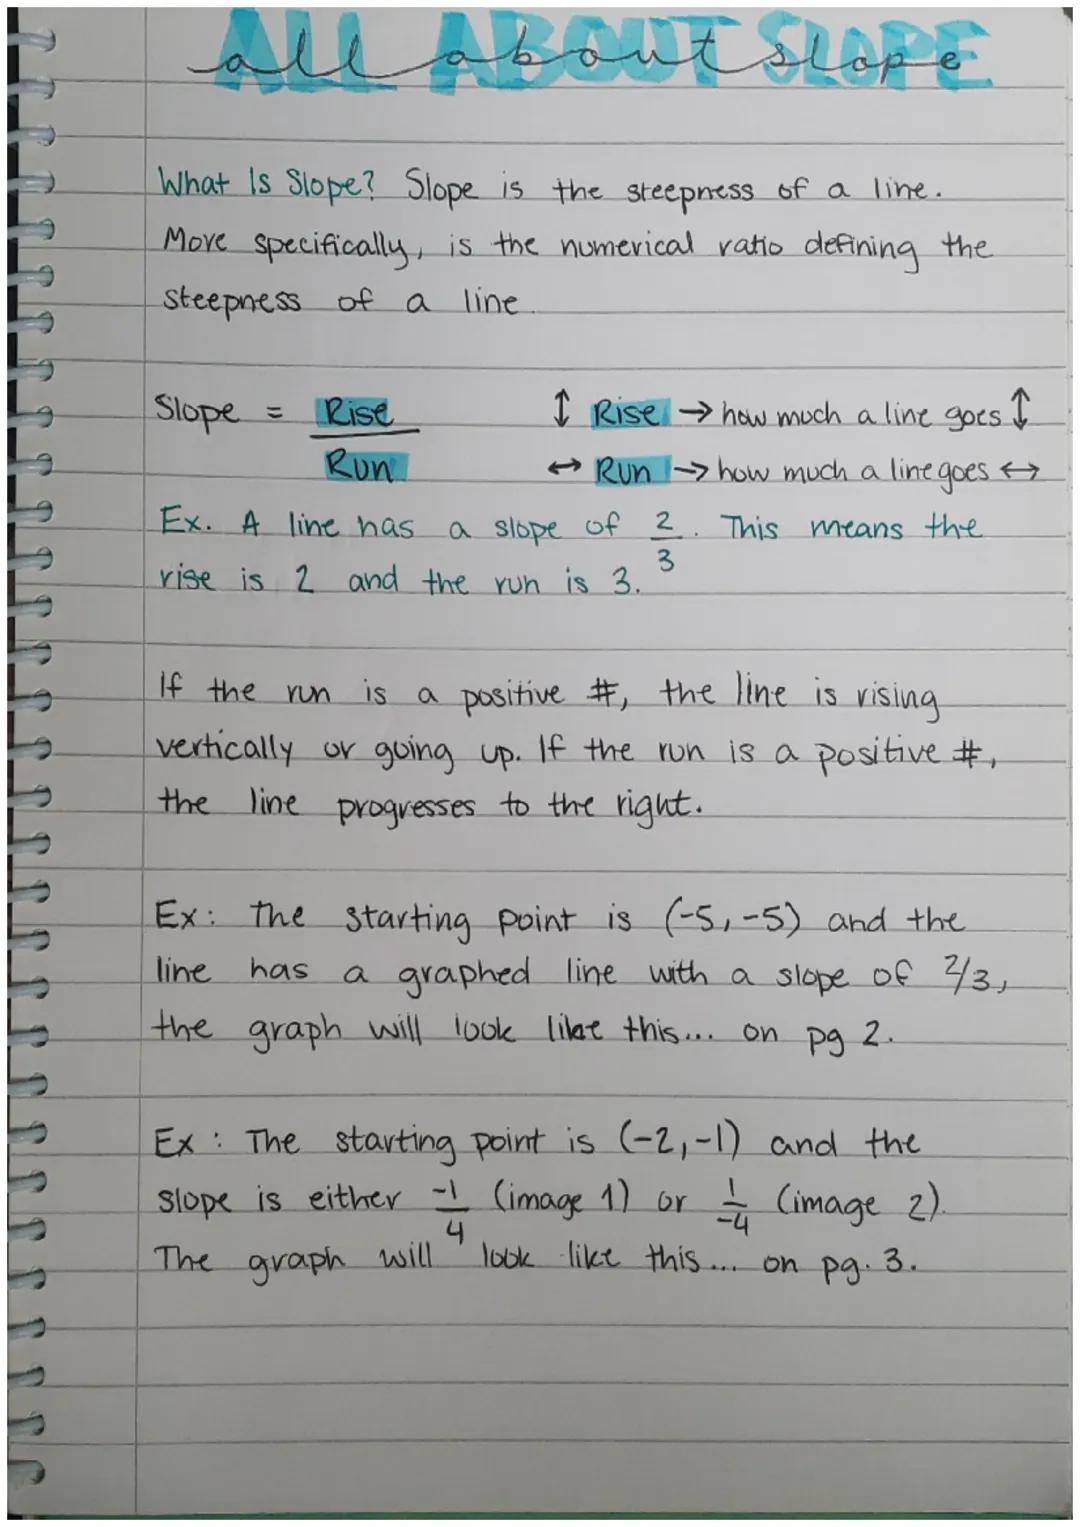 ALL ABOUT SLOPE
all about slope
What Is Slope? Slope is the steepness of a line.
More specifically, is the numerical ratio defining the
steepness of a line.
Slope = Rise ↕ Rise → how much a line goes ↕
Run ↔ Run → how much a line goes ↔
Ex. A line has a slope of 2/3. This means the
rise is 2 and the run is 3.
If the run is a positive #, the line is rising
vertically or going up. If the run is a positive #,
the line progresses to the right.
Ex: The starting point is (-5,-5) and the
line has a graphed line with a slope of 2/3,
the graph will look like this... on pg 2.
Ex: The starting point is (-2,-1) and the
slope is either -1/4 (image 1) or 1/-4 (image 2).
The graph will look like this... on pg. 3.